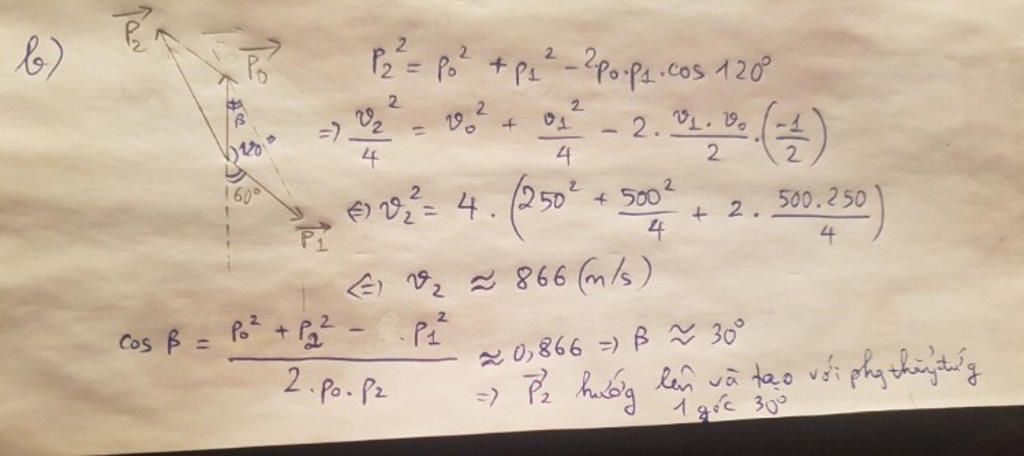 b)
P₂⃗
P₀⃗
β
120°
60°
P₁⃗
P₂² = P₀² + P₁² - 2P₀.P₁.cos 120°
=> v₂²/4 = v₀² + v₁²/4 - 2. (v₁.v₀)/2 . (-1/2)
<=> v₂² = 4. (250² + 500²/4 + 2. (500.250)/4)
<=> v₂ ≈ 866 (m/s)
cos β = (P₀² + P₂² - . P₁²)/(2.P₀.P₂) ≈ 0,866 => β ≈ 30°
=> P₂⃗ hướg lên và tạo với phg thẳg đứg
1 góc 30°